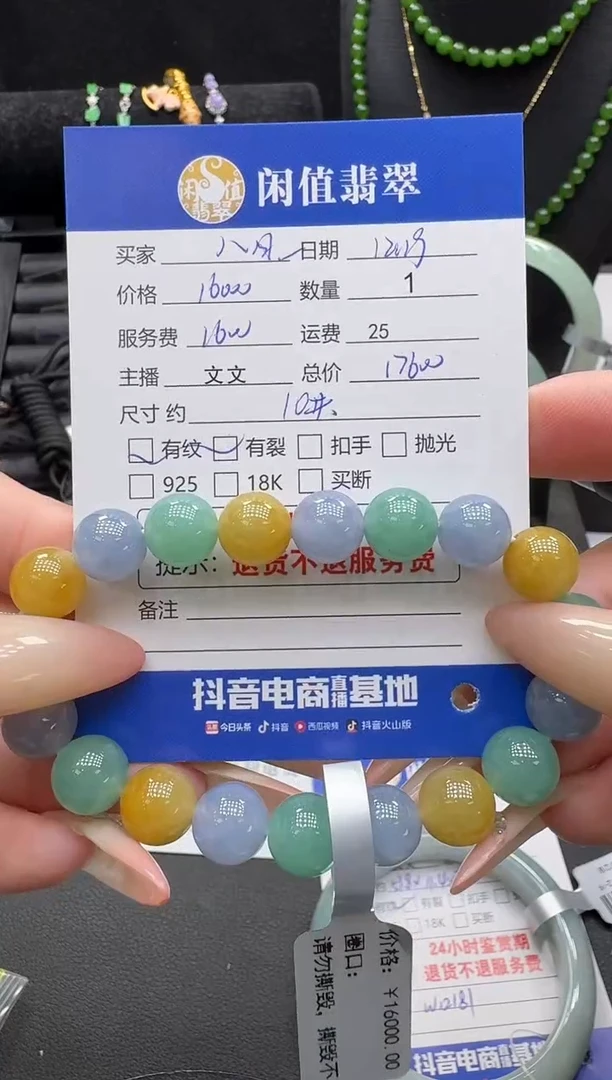 闲值翡翠
闲值翡翠
买家 八月 日期 12.19
价格 16000 数量 1
服务费 1600 运费 25
主播 文文 总价 17600
尺寸 约 10#
有纹 有裂 扣手 抛光
925 18K 买断
提示：退货不退服务费
备注
抖音电商直播基地
今日头条 抖音 西瓜视频 抖音火山版
价格：￥16000.00
圈口：
请勿撕毁，撕毁不
有裂 扣手
18K 买断
24小时鉴赏期
退货不退服务费
抖音电商